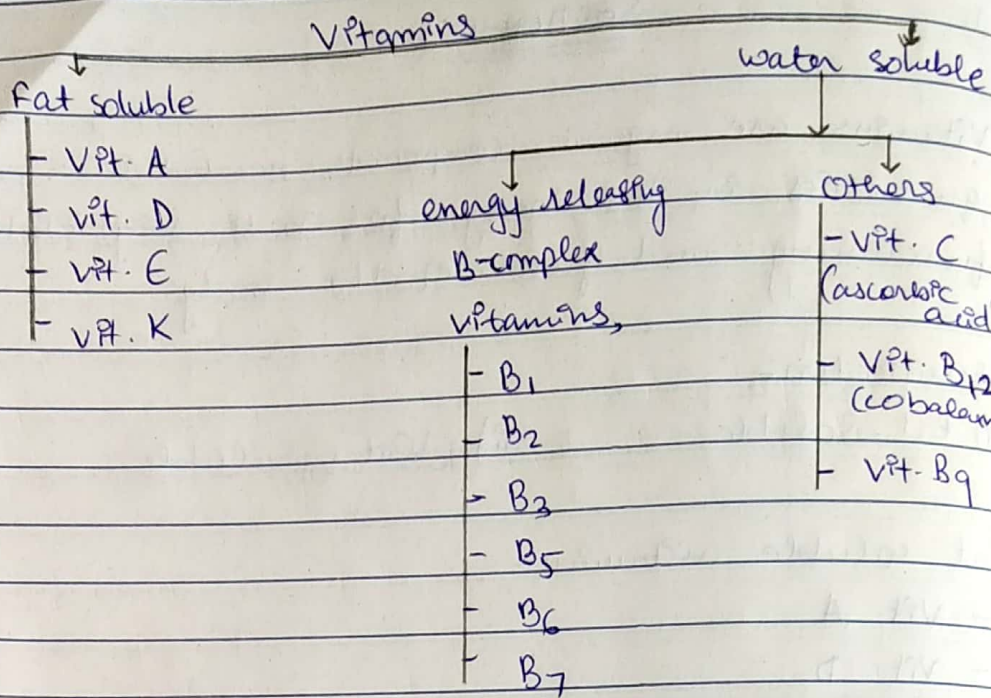 Vitamins
Fat soluble
Vit. A
Vit. D
Vit. E
Vit. K
water soluble
energy releasing
B-complex
vitamins,
B1
B2
B3
B5
B6
B7
Others
Vit. C
(ascorbic
acid
Vit. B12
(cobalam
Vit. B9